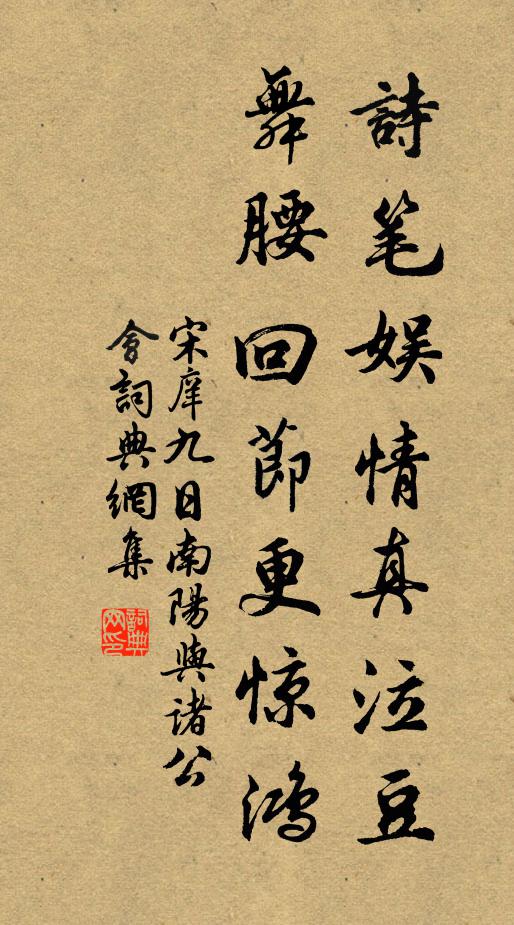 詩笔娱情真泣豆
舞腰回節更惊鴻
宋庠九日南陽與诸公
會詞典網集
詞典
网印